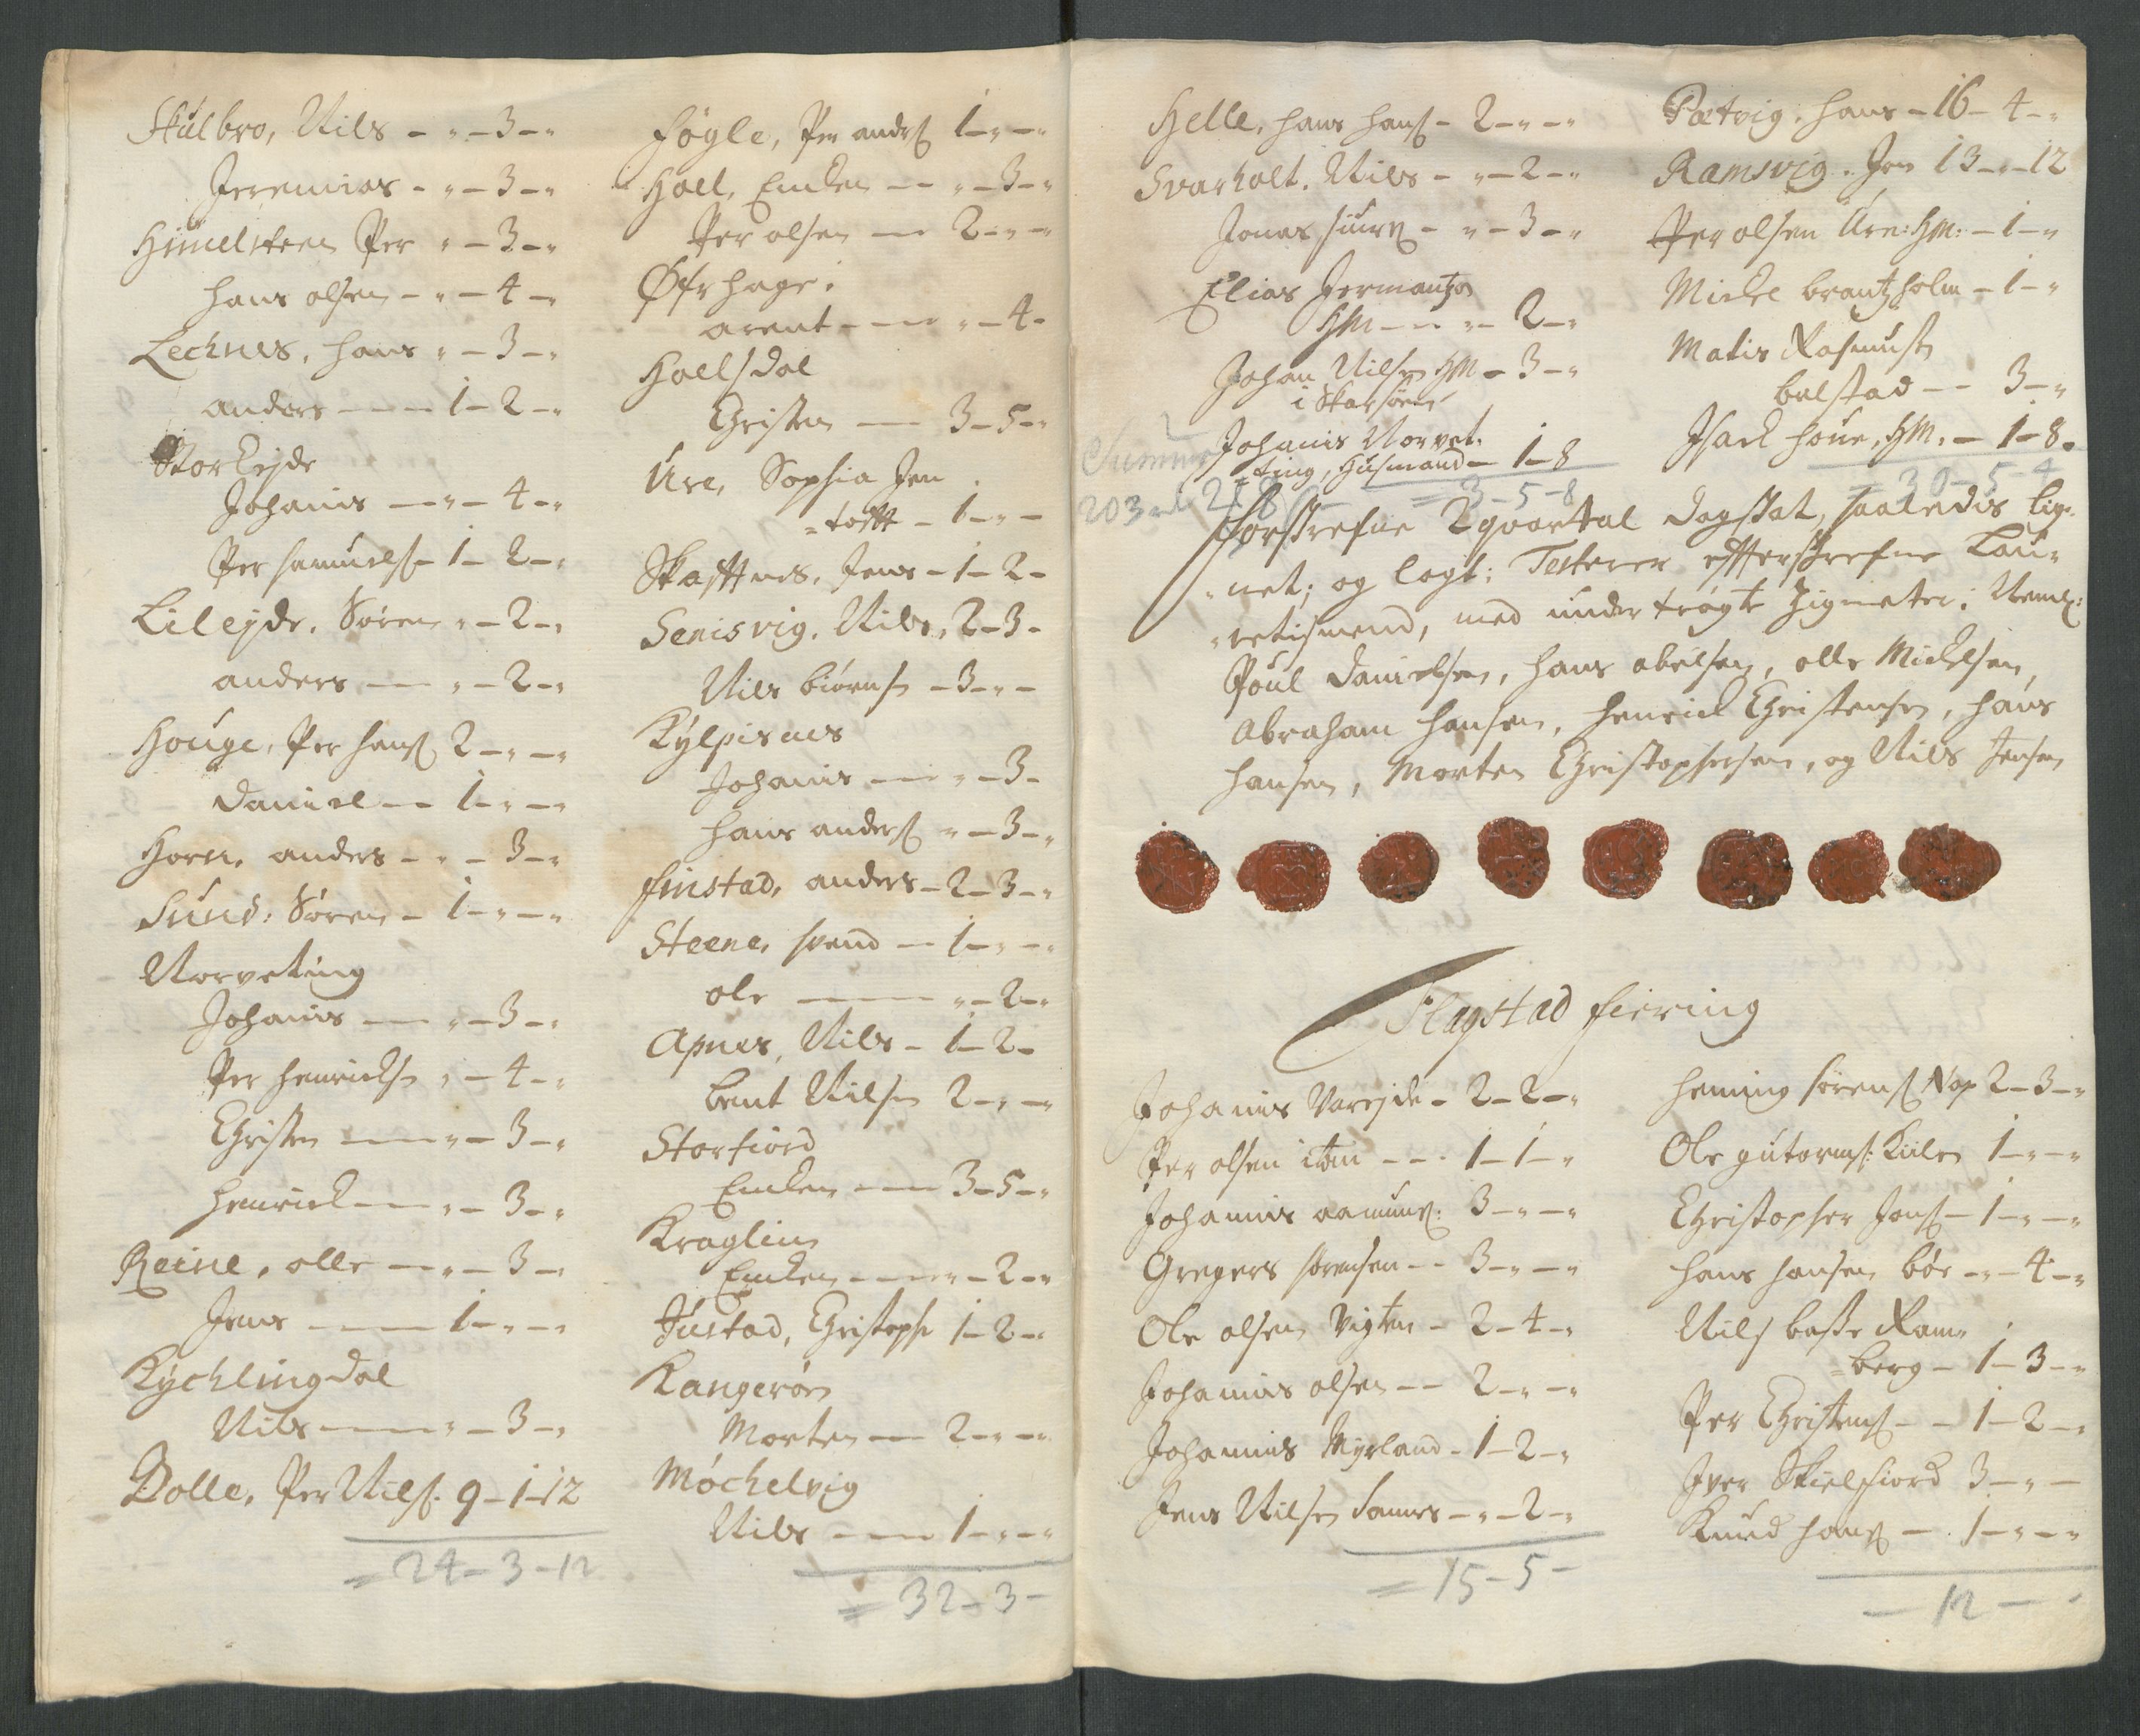 Skulbro, Nils - " - 3 - "
Jeremias - " - 3 - "
Himelsteen Per " - 3 - "
hans olsen - " - 4 - "
Lechnes, hans " - 3 - "
anders - 1 - 2 - "
Storeyde
Johanis - " - 4 - "
Per samuels - 1 - 2 - "
Lileyde, Søren " - 2 - "
anders - " - 2 - "
Houge, Per hans 2 - " - "
Daniel - 1 - " - "
Horn, anders - " - 3 - "
Sund, Søren - 1 - " - "
Norveting
Johanis - " - 3 - "
Per henrichs " - 4 - "
Christen - " - 3 - "
henrich - " - 3 - "
Reine, olle - " - 3 - "
Jens - 1 - " - "
Kychlingdal
Nils - " - 3 - "
Dolle, Per Nils: 9 - 1 - 12
= 24 - 3 - 12
føgle, Per anders 1 - " - "
Holl, Emken - " - 3 - "
Per olsen - 2 - " - "
Øfrhage
arent - " - 4 -
Hollsdal
Christen - 3 - 5 - "
Ure, Sophia Jen
= tofft - 1 - " -
Skafftnes, Jens - 1 - 2 -
Senisvig, Nils, 2 - 3 -
Nils biørns - 3 - " -
Kylpisnes
Johanis - " - 3 -
hans anders " - 3 - "
finstad, anders - 2 - 3 - "
Steene, svend - 1 - " - "
ole - " - 2 - "
Apnes, Nils - 1 - 2 -
bent Nilsen 2 - " - "
Storfiord
Emken - 3 - 5 - "
Kraglin
Emken - " - 2 - "
Justad, Christoph 1 - 2 - "
Kangerøn
Morten - 2 - " - "
Møchelvig
Nils - 1 - " - "
= 32 - 3 -
Helle, hans hans - 2 - " - "
Svarholt, Nils - " - 2 - "
Jonas - " - 3 - "
Elias
HM - " - 2 - "
Johan Nilsen HM - 3 - "
i
Johanis Norvet
= ting, Husmand - 1 - 8
= 3 - 5 - 8
Pætvig, hans - 16 - 4 - "
Ramsvig, Jon 13 - " - 12
Per olsen Ure: HM: - 1 - "
Micke brantzholm - 1 - "
Matis Rasmusen
bolstad - 3 - "
Isach houe, HM, - 1 - 8.
= 30 - 5 - 4
Summa
203
forskrefne 2 qvartal dagskat, saaledis lig=
=net; og lagt; Testerer effterskrefne Lau=
=retismend, med undertrøgte Zigneter; Neml:
Poul Danielsen, hans abelsen, olle Mickelsen,
Abraham hansen, henrich Christensen, hans
hansen, Morten Christophersen, og Nils Jensen
Flagstad fiering
Johanis Vareyde - 2 - 2 - "
Per olsen itm - 1 - 1 - "
Johannis aamuns: 3 - " - "
Gregers sørensen - 3 - " - "
Ole olsen Vigten - 2 - 4 - "
Johannis olsen - 2 - " - "
Johannis Myrland - 1 - 2 - "
Jens Nilsen Sannes - " - 2 - "
= 15 - 5 -
heming sørens Nap 2 - 3 - "
Ole gutorms: Kiilen 1 - " - "
Christopher Jons - 1 - " - "
hans hansen bøe - " - 4 - "
Nils basse Ram
= berg - 1 - 3 - "
Per Christens - 1 - 2 - "
Iver Skielfiord 3 - " -
Knud hans - 1 - " - "
- 12 - -